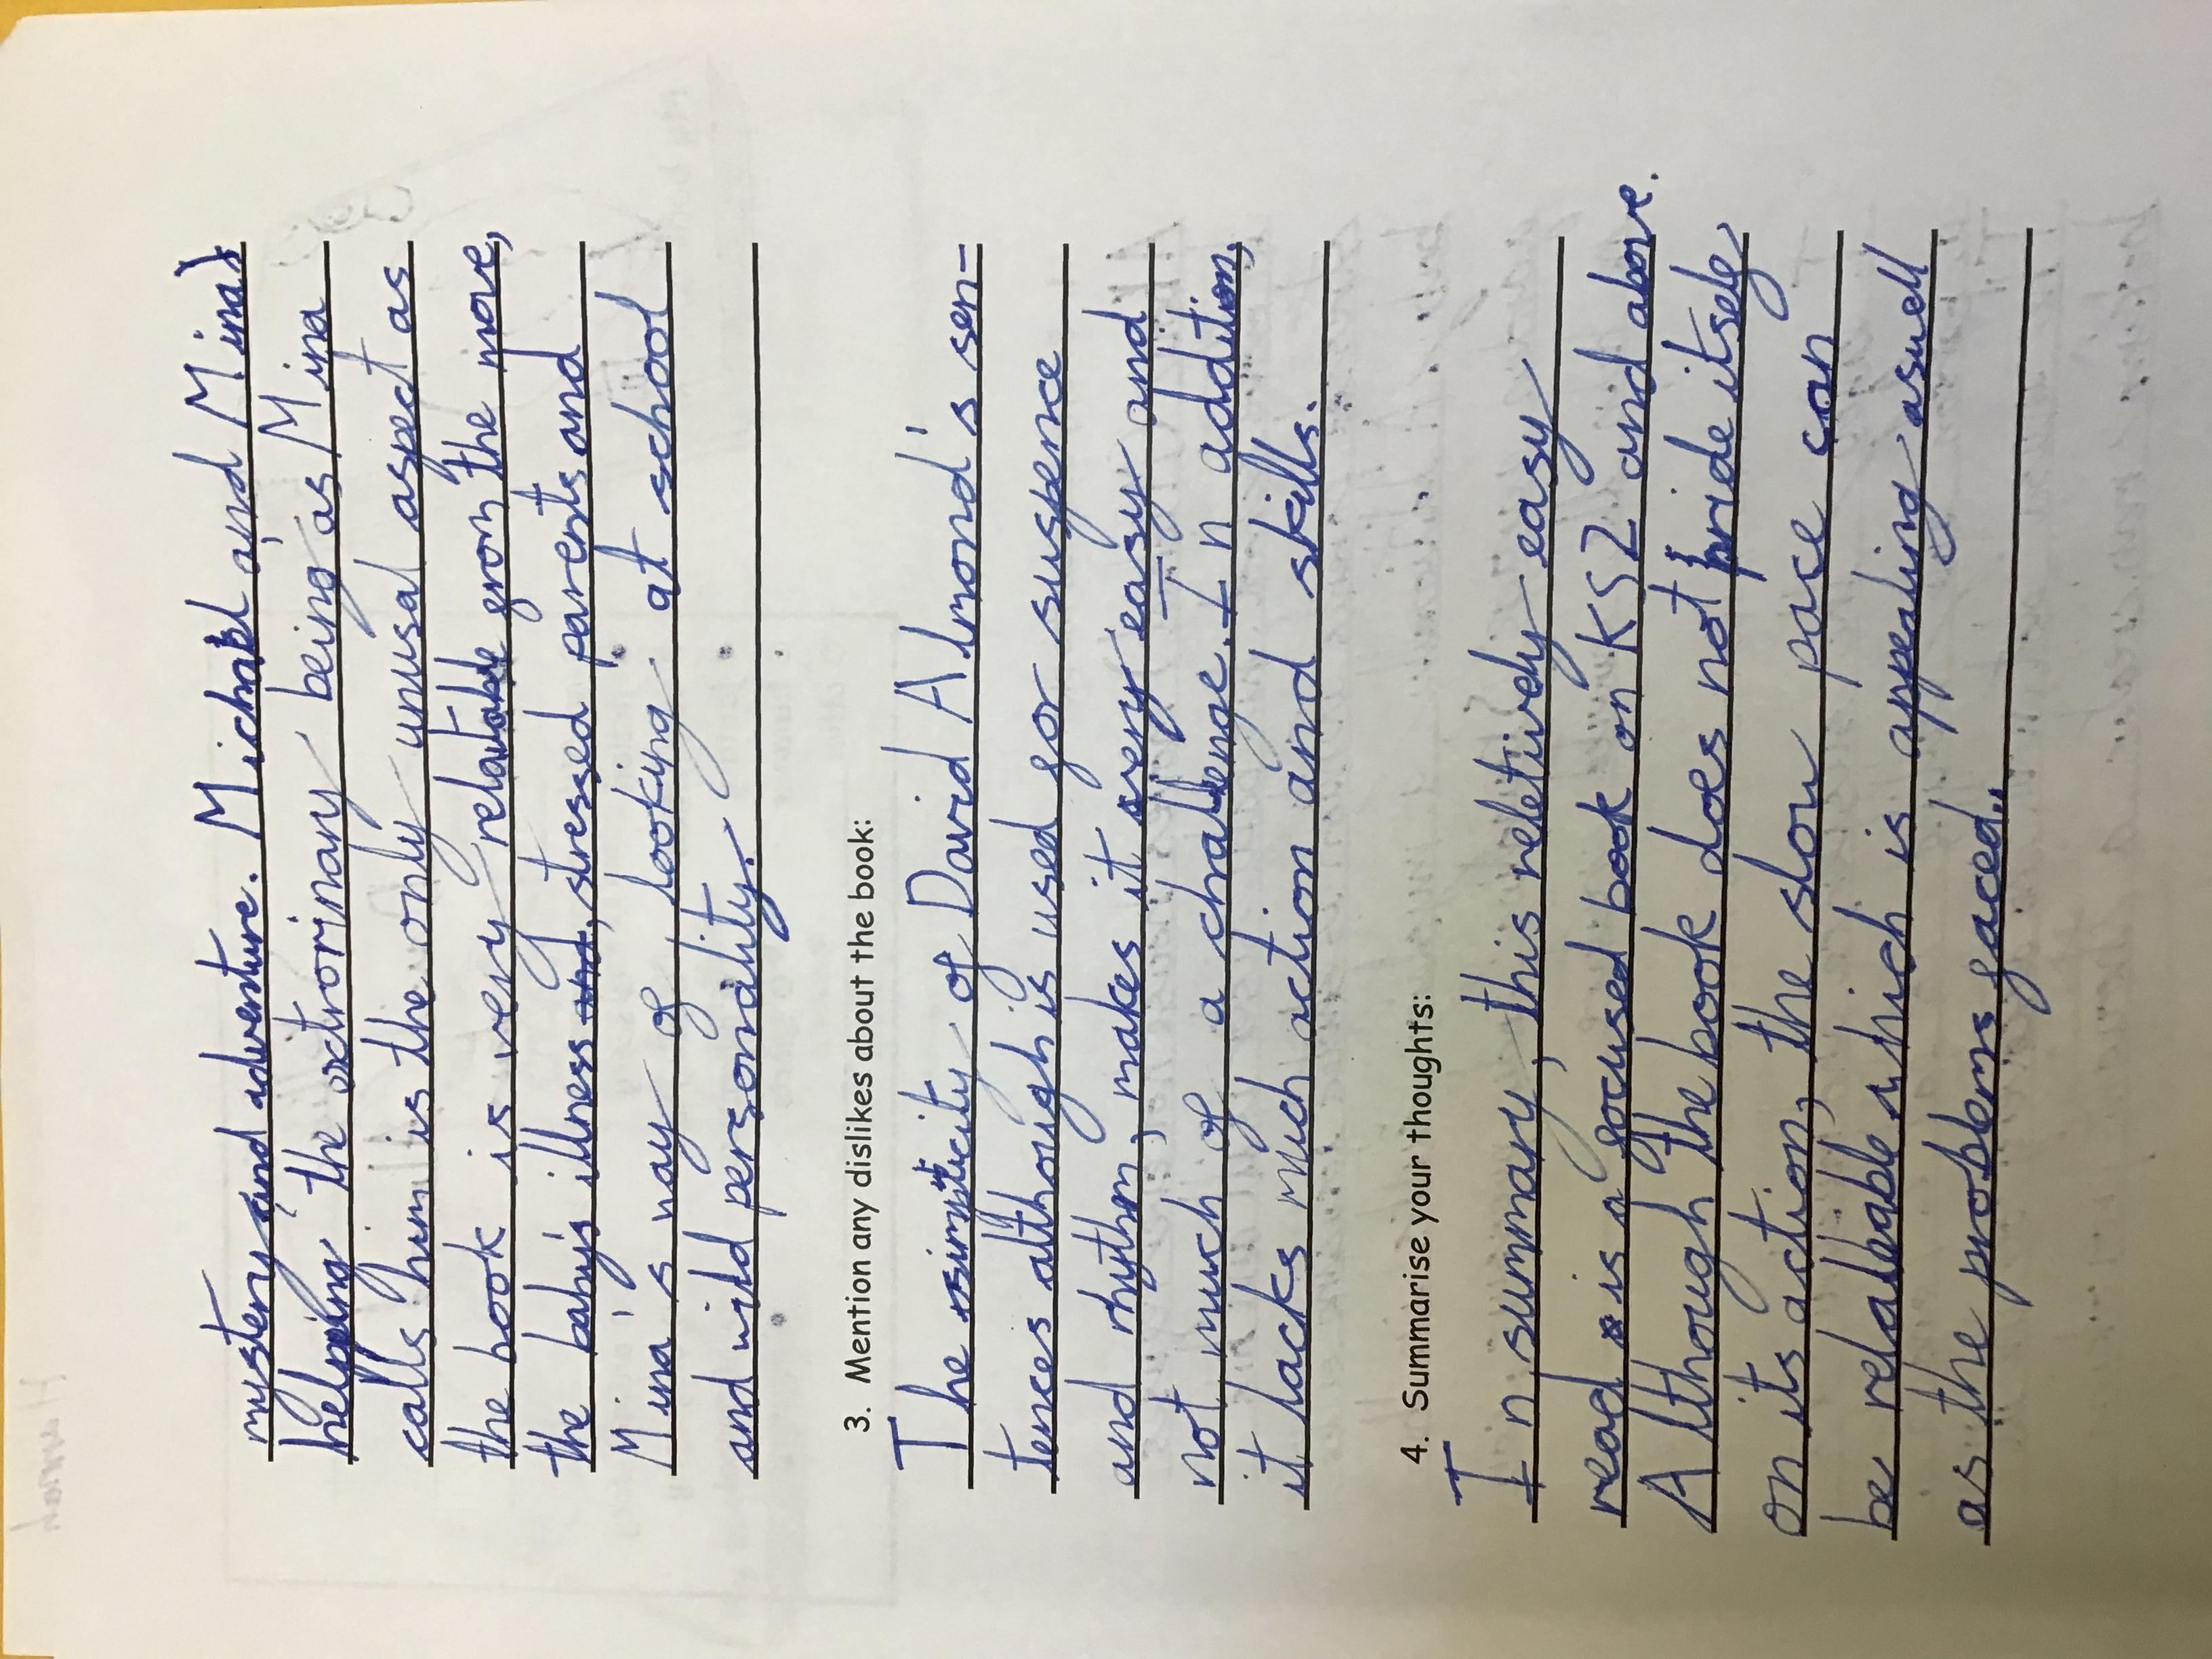 mystery and adventure. Michael and Mina's
helping the octrorinary being as Mina
calls him is the only unusal aspect as
the book is very relatable from the move,
the baby's illness, stressed parents and
Mina's way of looking at school
and wild personality.
3. Mention any dislikes about the book:
The simplicity of David Almond's sen-
tences although is used for suspence
and rhythm, makes it very easy and
not much of a challenge. In addition,
it lacks much action and skills.
4. Summarise your thoughts:
In summary, this reletively easy
read is a focused book on KS2 and above.
Although the book does not pride itself
on its action, the slow pace can
be relateable which is appealing aswell
as the problems faced.